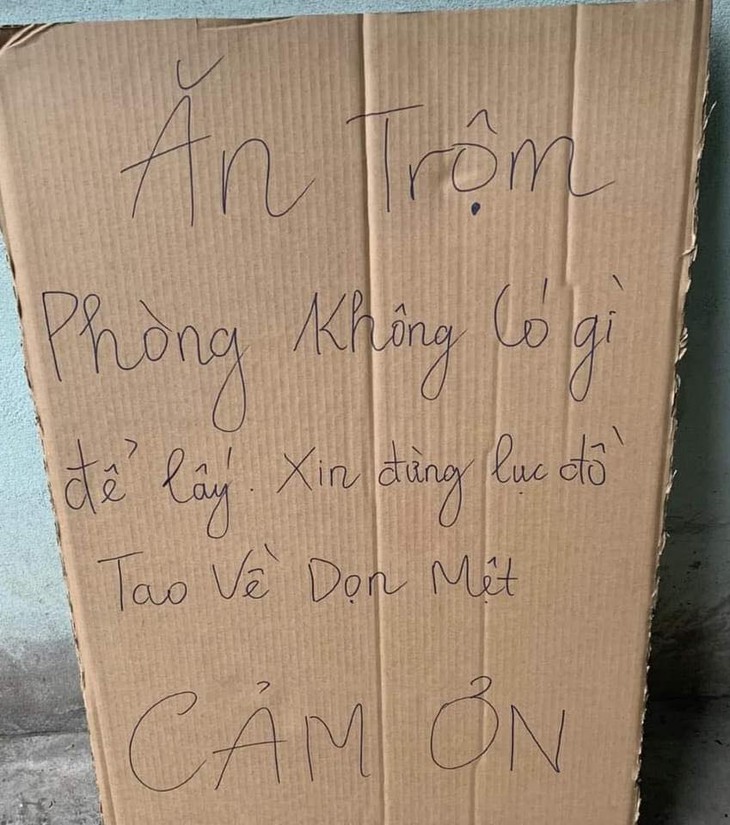 Ăn Trộm
Phòng Không Có gì
để lấy. Xin đừng lục đồ
Tao Về Dọn Mệt
CẢM ƠN